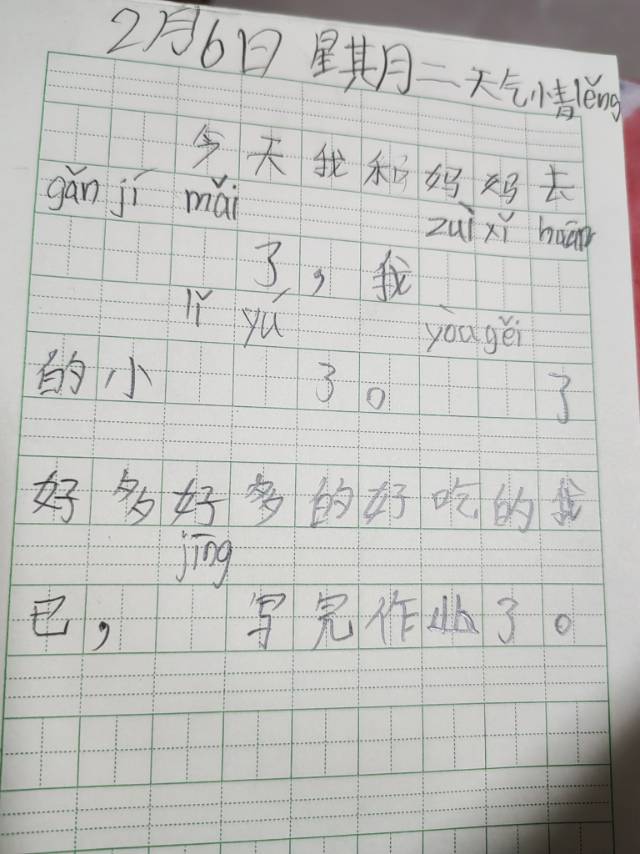 2月6日 星其月二 天气小青lěng
今天我和妈妈去
gǎn jí mǎi zuì xǐ huān
了，我
lǐ yú yòu gěi
的小了。了
好多好多的好吃的我
jīng
已，写完作业了。